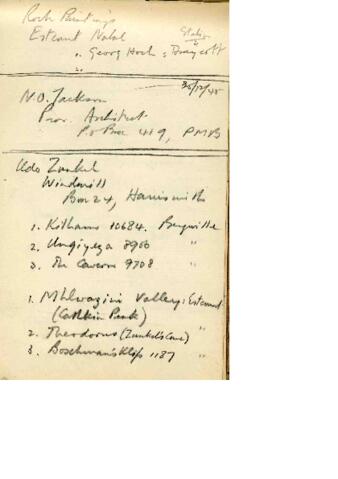 Rock Paintings
Estcourt Natal
Station
" Georg Hoch : Draycott
30/12/45
N.O. Jackson
Prov. Architect
P.O Box 419, PMB
Udo Zunkel
Windmill
Box 24, Harrismith
1. Kothamo 10684. Bergville
2. 8900 "
3. The Cavern 9708 "
1. Mhlwazini Valley: Estcourt
(Cathkin Peak)
2. Theodorus (Zunkel's Cave) "
3. Boschman's Klip 1187 "